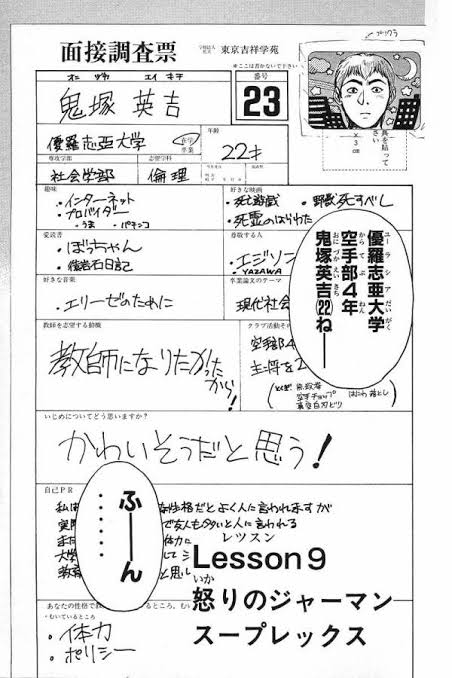 面接調査票
学校法人
東京吉祥学苑
※ここは書かないで下さい
プリクラ
番号
23
オニ ヅカ エイ キチ
鬼塚 英吉
優羅志亜大学
在学
卒業
年齢
22才
専攻学部
社会学部
志望学科
倫理
真を貼って
さい
×3cm
趣味
・インターネット
・プロバイダー
・うま ・パチンコ
好きな映画
・死亡遊戯 ・野獣死すべし
・死霊のはらわた
愛読書
・ぼっちゃん
尊敬する人
・エジソン
・YAZAWA
好きな音楽
・エリーゼのために
卒業論文のテーマ
現代社会
教師を志望する動機
教師になりたかったから!
クラブ活動そ
空手部4
主将を2
とくぎ
空手チョップ
いじめについてどう思いますか?
かわいそうだと思う!
自己PR
私は
性格だとよく人に言われますが
で友人も多いと人に言われる
大学
あなたの性格で
ているところ、むい
・むいているところ
・体力
・ポリシー
優羅志亜大学
ユーラシアだいがく
空手部4年
からてぶ ねん
鬼塚英吉(22)ねーー
おにづかえいきち
ふーーん
・・・・・・
レッスン
Lesson9
いか
怒りのジャーマン
スープレックス